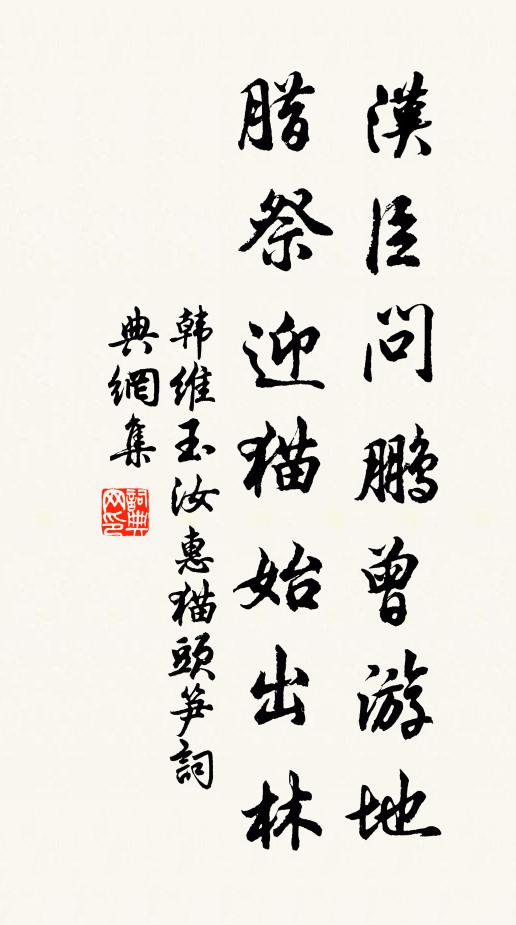 漢臣問鵬曾游地
腊祭迎猫始出林
韩維玉汝惠猫頭笋詞
典網集
詞典
网印